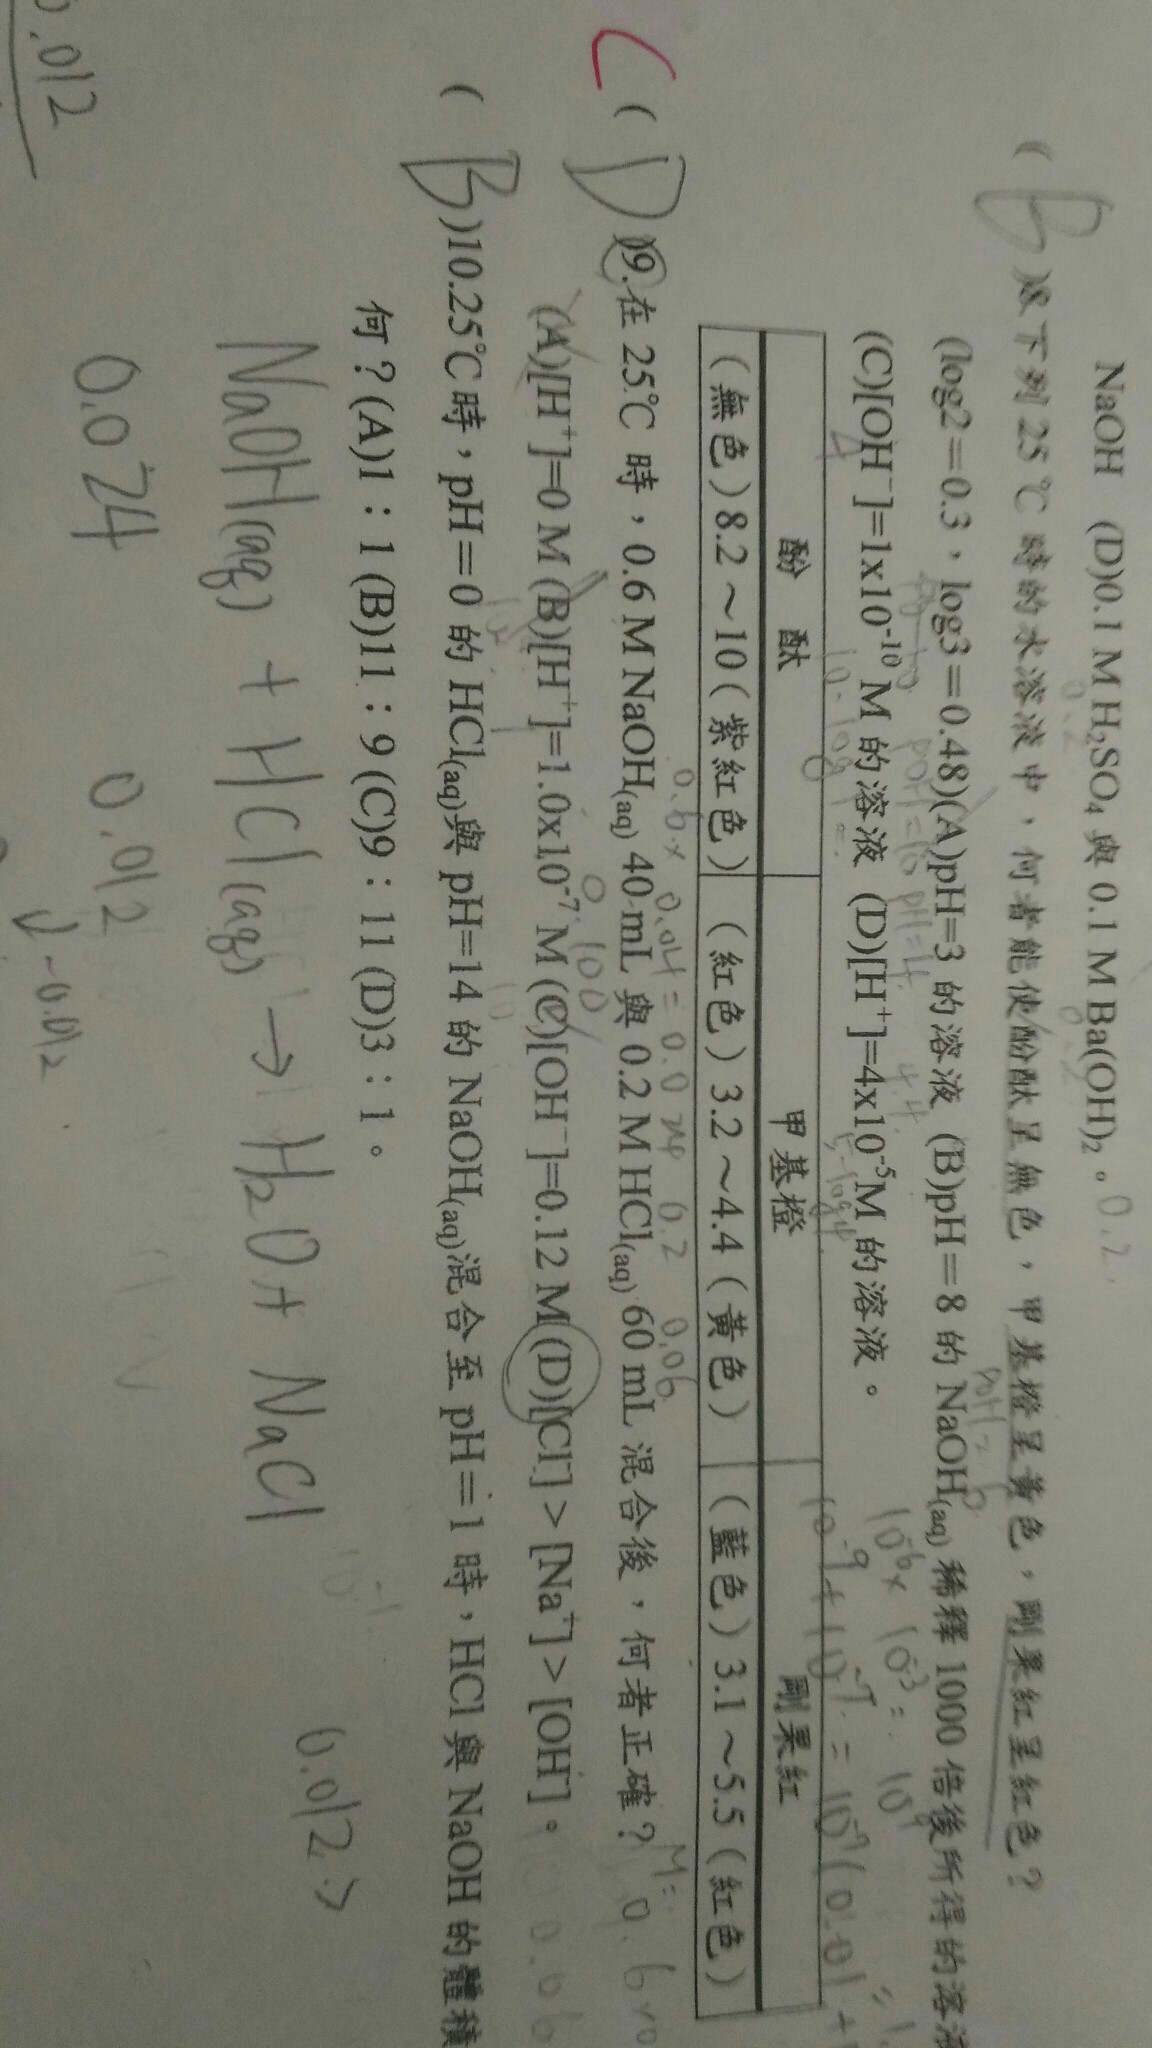 NaOH (D)0.1 M H₂SO₄ 與 0.1 M Ba(OH)₂。
0.2 0.2 0.2
( B )8.下列 25 ℃ 時的水溶液中，何者能使酚酞呈無色，甲基橙呈黃色，剛果紅呈紅色？
(log2＝0.3，log3＝0.48)(A)pH=3 的溶液 (B)pH＝8 的 NaOH(aq) 稀釋 1000 倍後所得的溶液
(C)[OH⁻]=1x10⁻¹⁰ M 的溶液 (D)[H⁺]=4x10⁻⁵M 的溶液。
酚 酞 甲基橙 剛果紅
（無色）8.2～10（紫紅色） （紅色）3.2～4.4（黃色） （藍色）3.1～5.5（紅色）
0.6 x 0.04 = 0.024 0.2 0.06
C ( D )9.在 25℃ 時，0.6 M NaOH(aq) 40 mL 與 0.2 M HCl(aq) 60 mL 混合後，何者正確？
(A)[H⁺]=0 M (B)[H⁺]=1.0x10⁻⁷ M (C)[OH⁻]=0.12 M (D)[Cl⁻]＞[Na⁺]＞[OH⁻]。
( B )10.25℃時，pH＝0 的 HCl(aq)與 pH=14 的 NaOH(aq)混合至 pH＝1 時，HCl 與 NaOH 的體積
何？(A)1：1 (B)11：9 (C)9：11 (D)3：1。
NaOH(aq) + HCl(aq) → H₂O + NaCl
0.024 0.012 0.012
-0.012
0.012